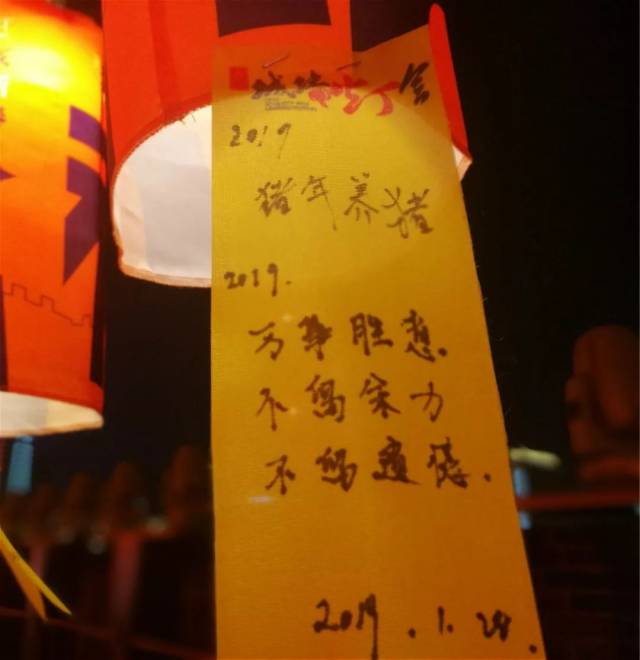 城墙灯会
2019
猪年养猪
2019.
万事胜意。
不留余力
不留遗憾.
2019.1.28.